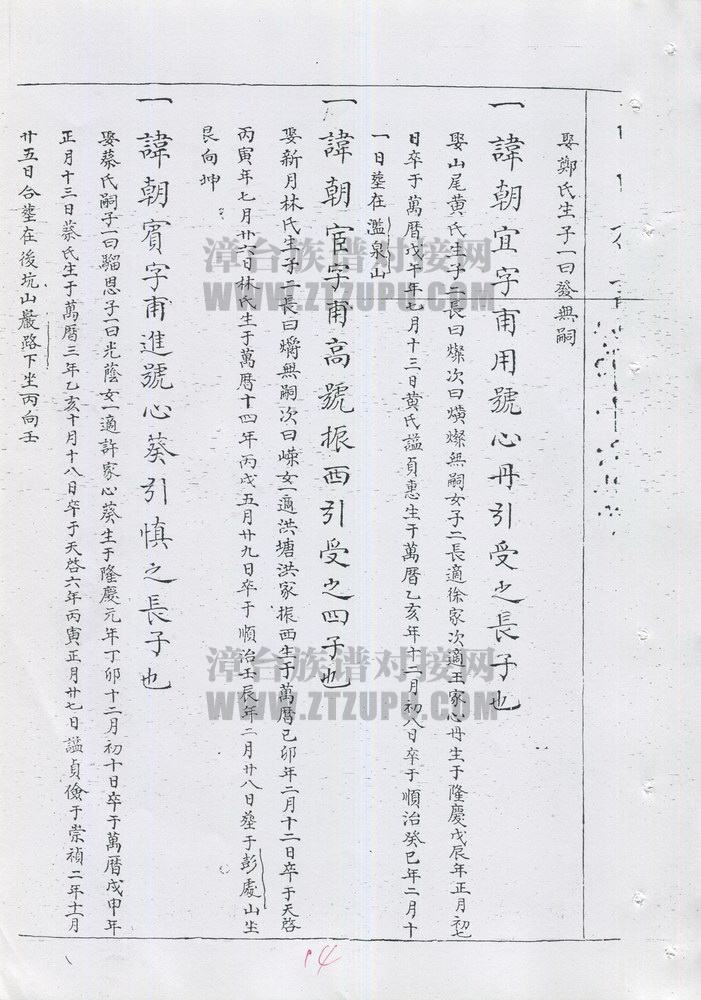 娶鄭氏生子一曰發無嗣
一諱朝宜字甫用號心丹引受之長子也
娶山尾黃氏生子二長曰燦次曰熿燦無嗣女子二長適徐家次適王家心丹生于隆慶戊辰年正月初七
日卒于萬曆戊午年七月十三日黃氏諡貞惠生于萬曆乙亥年十二月初八日卒于順治癸巳年二月十
一日塟在濫泉山
一諱朝宦字甫高號振西引受之四子也
娶新月林氏生子二長曰爝無嗣次曰嶸女一適洪塘洪家振西生于萬曆己卯年二月十二日卒于天啓
丙寅年七月廿六日林氏生于萬曆十四年丙戌五月廿九日卒于順治壬辰年二月廿八日塟于彭處山坐
艮向坤
一諱朝賓字甫進號心葵引慎之長子也
娶蔡氏嗣子一曰騮恩子一曰光蔭女一適許家心葵生于隆慶元年丁卯十二月初十日卒于萬曆戊申年
正月十三日蔡氏生于萬曆三年乙亥十月十八日卒于天啓六年丙寅正月廿七日諡貞儉于崇禎二年十一月
廿五日合塟在後坑山巖路下坐丙向壬
漳台族谱对接网
WWW.ZTZUPU.COM
漳台族谱对接网
WWW.ZTZUPU.COM
14